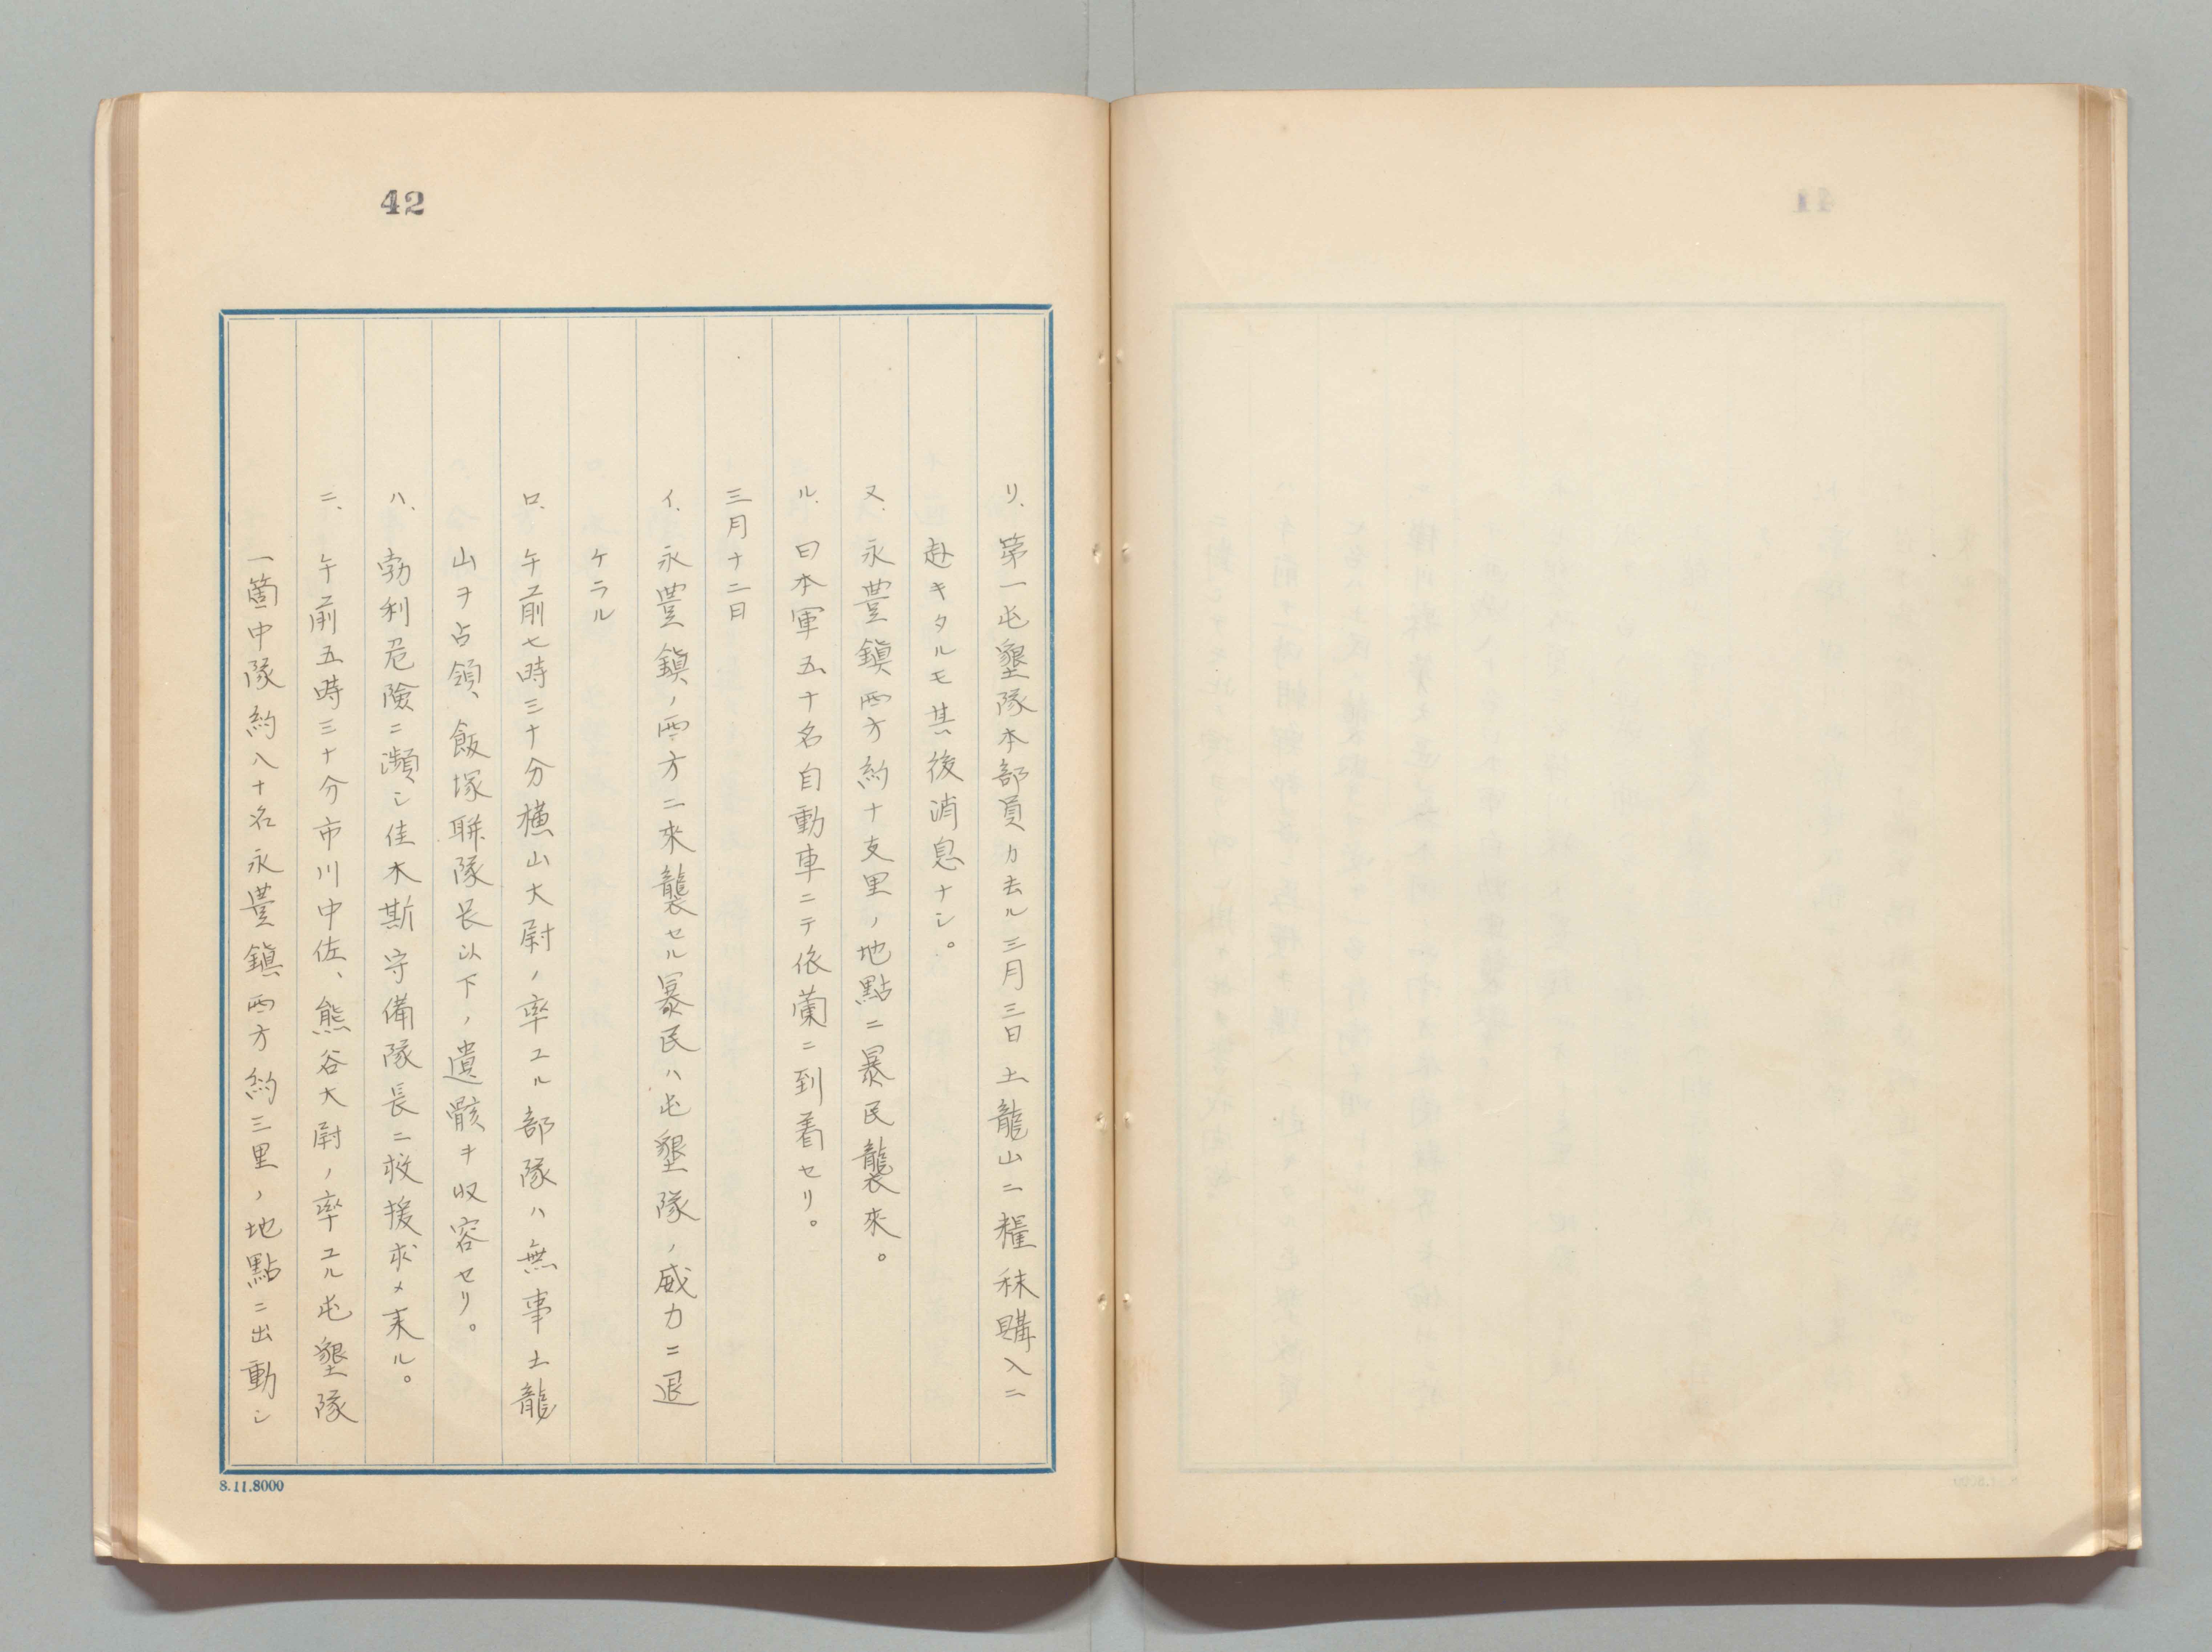 42
リ、第一屯墾隊本部員カ去ル三月三日土龍山ニ糧秣購入ニ
赴キタルモ其後消息ナシ。
ヌ、永豊鎭西方約十支里ノ地點ニ暴民襲來。
ル、日本軍五十名自動車ニテ依蘭ニ到着セリ。
三月十二日
イ、永豊鎭ノ西方ニ來襲セル暴民ハ屯墾隊ノ威力ニ退
ケラル
ロ、午前七時三十分横山大尉ノ率エル部隊ハ無事土龍
山ヲ占領、飯塚聯隊長以下ノ遺骸ヲ収容セリ。
ハ、勃利危險ニ瀕シ佳木斯守備隊長ニ救援求メ来ル。
ニ、午前五時三十分市川中佐、熊谷大尉ノ率エル屯墾隊
一箇中隊約八十名永豊鎭西方約三里ノ地點ニ出動シ
8.11.8000